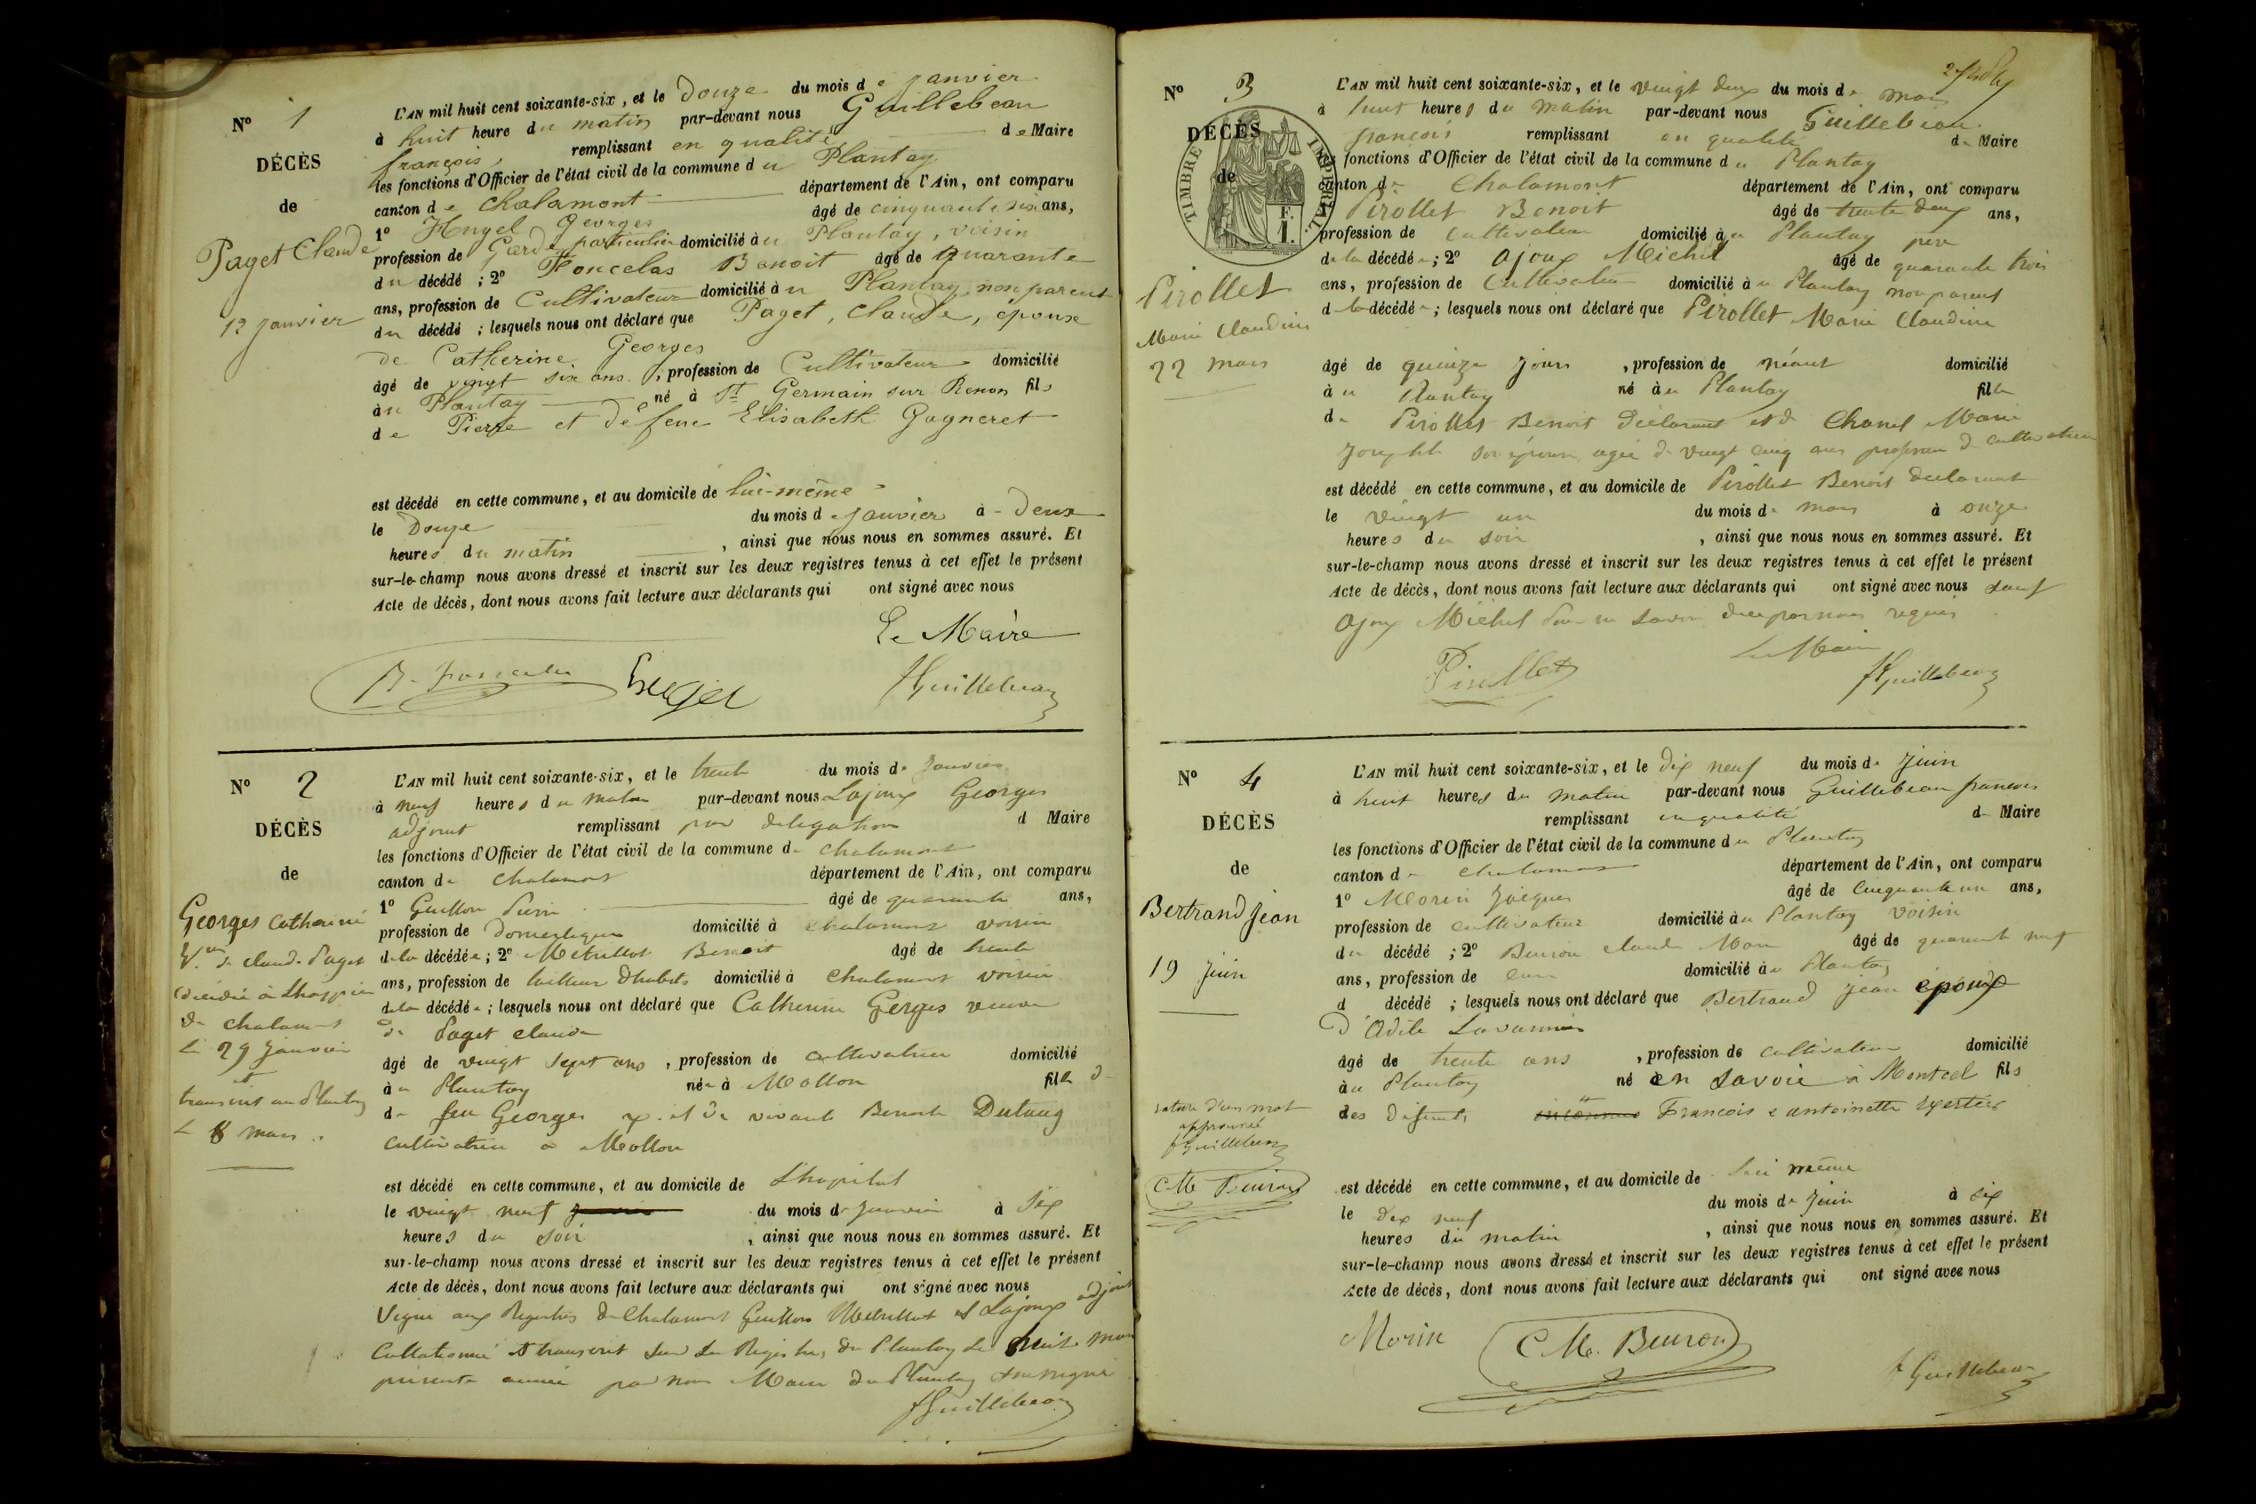 N° 1
DÉCÈS
de
Paget Claude
12 janvier
L'AN mil huit cent soixante-six, et le Douze du mois de janvier
à huit heure du matin par-devant nous Guillebeau
françois, remplissant en qualité de Maire
les fonctions d'Officier de l'état civil de la commune du Plantay
canton de Chalamont département de l'Ain, ont comparu
1° Hugel Georges âgé de cinquante six ans,
profession de Garde particulier domicilié au Plantay, voisin
du décédé ; 2° Foncelas Benoit âgé de Quarante
ans, profession de Cultivateur domicilié au Plantay non parent
du décédé ; lesquels nous ont déclaré que Paget, Claude, époux
de Catherine Georges
âgé de vingt six ans, profession de Cultivateur domicilié
au Plantay né à St Germain sur Renon fils
de Pierre et de feue Elisabeth Gagneret
est décédé en cette commune, et au domicile de lui-même
le Douze du mois de janvier à Deux
heures du matin, ainsi que nous nous en sommes assuré. Et
sur-le-champ nous avons dressé et inscrit sur les deux registres tenus à cet effet le présent
Acte de décès, dont nous avons fait lecture aux déclarants qui ont signé avec nous
Le Maire
fGuillebeau
N° 2
DÉCÈS
de
Georges Catherine
Vve de Claude Paget
décédée à Lhospice
de Chalamont
le 29 janvier
et
transcrit au Plantay
le 8 mars
L'AN mil huit cent soixante-six, et le trente du mois de janvier
à neuf heures du matin par-devant nous Lajoux Georges
adjoint remplissant par delegation d Maire
les fonctions d'Officier de l'état civil de la commune de Chalamont
canton de Chalamont département de l'Ain, ont comparu
1° Guillon Pierre âgé de quarante ans,
profession de Domestique domicilié à Chalamont voisin
de la décédée ; 2° Metrillot Benoit âgé de trente
ans, profession de tailleur d'habits domicilié à Chalamont voisin
de la décédée ; lesquels nous ont déclaré que Catherine Gerges veuve
de Paget Claude
âgé de vingt sept ans, profession de cultivatrice domicilié
au Plantay née à Mollon fille d
de feu Georges et de vivante Benoite Dutang
cultivatrice à Mollon
est décédé en cette commune, et au domicile de L'hopital
le vingt neuf du mois de janvier à Six
heures du soir, ainsi que nous nous en sommes assuré. Et
sur-le-champ nous avons dressé et inscrit sur les deux registres tenus à cet effet le présent
Acte de décès, dont nous avons fait lecture aux déclarants qui ont signé avec nous
Signé aux Registres de Chalamont Guillon Metrillot et Lajoux adjoint
Collationné et transcrit sur les Registres du Plantay le huit mars
presente année par nous Maire du Plantay soussigné
fGuillebeau
N° 3
DÉCÈS
de
TIMBRE IMPÉRIAL
F.
1.
Pirollet
Marie Claudine
22 mars
L'AN mil huit cent soixante-six, et le vingt deux du mois de mars
à huit heures du matin par-devant nous Guillebeau
françois remplissant en qualité de Maire
fonctions d'Officier de l'état civil de la commune du Plantay
canton de Chalamont département de l'Ain, ont comparu
Pirollet Benoit âgé de trente deux ans,
profession de Cultivateur domicilié au Plantay père
de la décédée ; 2° Ajoux Michel âgé de quarante trois
ans, profession de Cultivateur domicilié au Plantay non parent
de la décédée ; lesquels nous ont déclaré que Pirollet Marie Claudine
âgé de quinze jours, profession de néant domicilié
au Plantay né au Plantay fille
de Pirollet Benoit déclarant et de Chanel Marie
Josephte son épouse, agée de vingt cinq ans profession de cultivatrice
est décédé en cette commune, et au domicile de Pirollet Benoit declarant
le vingt un du mois de mars à onze
heures du soir, ainsi que nous nous en sommes assuré. Et
sur-le-champ nous avons dressé et inscrit sur les deux registres tenus à cet effet le présent
Acte de décès, dont nous avons fait lecture aux déclarants qui ont signé avec nous sauf
Ajoux Michel pour ne savoir de ce par nous requis
Le Maire
Pirollet
fGuillebeau
N° 4
DÉCÈS
de
Bertrand Jean
19 Juin
rature d'un mot
approuvée
fGuillebeau
CM Beuron
L'AN mil huit cent soixante-six, et le dix neuf du mois de Juin
à huit heures du matin par-devant nous Guillebeau françois
remplissant en qualité de Maire
les fonctions d'Officier de l'état civil de la commune du Plantay
canton de Chalamont département de l'Ain, ont comparu
1° Morin Jacques âgé de Cinquante un ans,
profession de cultivateur domicilié au Plantay voisin
du décédé ; 2° Beuron Claude Marie âgé de quarante neuf
ans, profession de domicilié au Plantay
d décédé ; lesquels nous ont déclaré que Bertrand Jean époux
d'Adèle
âgé de trente ans, profession de cultivateur domicilié
au Plantay né en Savoie à Montcel fils
des défunts François et antoinette Expertier
est décédé en cette commune, et au domicile de lui même
le dix neuf du mois de Juin à six
heures du matin, ainsi que nous nous en sommes assuré. Et
sur-le-champ nous avons dressé et inscrit sur les deux registres tenus à cet effet le présent
Acte de décès, dont nous avons fait lecture aux déclarants qui ont signé avec nous
Morin
C M. Beuron
fGuillebeau